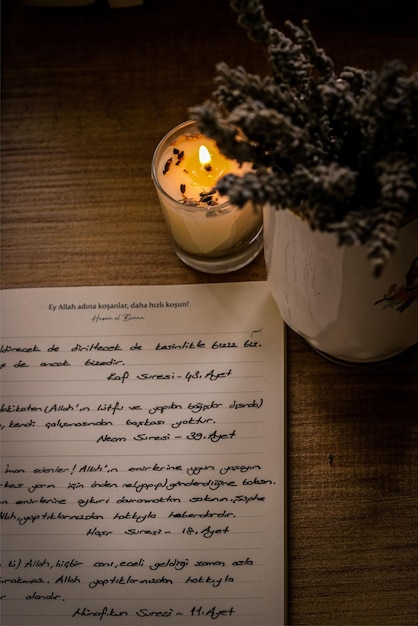 Ey Allah adına koşanlar, daha hızlı koşun!
Hasan el Benna
öldürecek de diriltecek de kesinlikle bizz biz.
de ancak bizedir.
Kaf Suresi - 43. Ayet
(Allah'ın lütfu ve yapılan bağışlar dışında)
, kendi çalışmasından başkası yoktur.
Necm Suresi - 39. Ayet
iman edenler! Allah'ın emirlerine uygun yaşayın
kes yarın için önden ne(yapıp) gönderdiğine baksın.
emirlerine aykırı davranmaktan sakının. Şüphe
Allah, yaptıklarınızdan hakkıyla haberdardır.
Haşr Suresi - 18. Ayet
ki) Allah, hiçbir canı, eceli geldiği zaman asla
Allah yaptıklarınızdan hakkıyla
alandır.
Münafikun Suresi - 11. Ayet